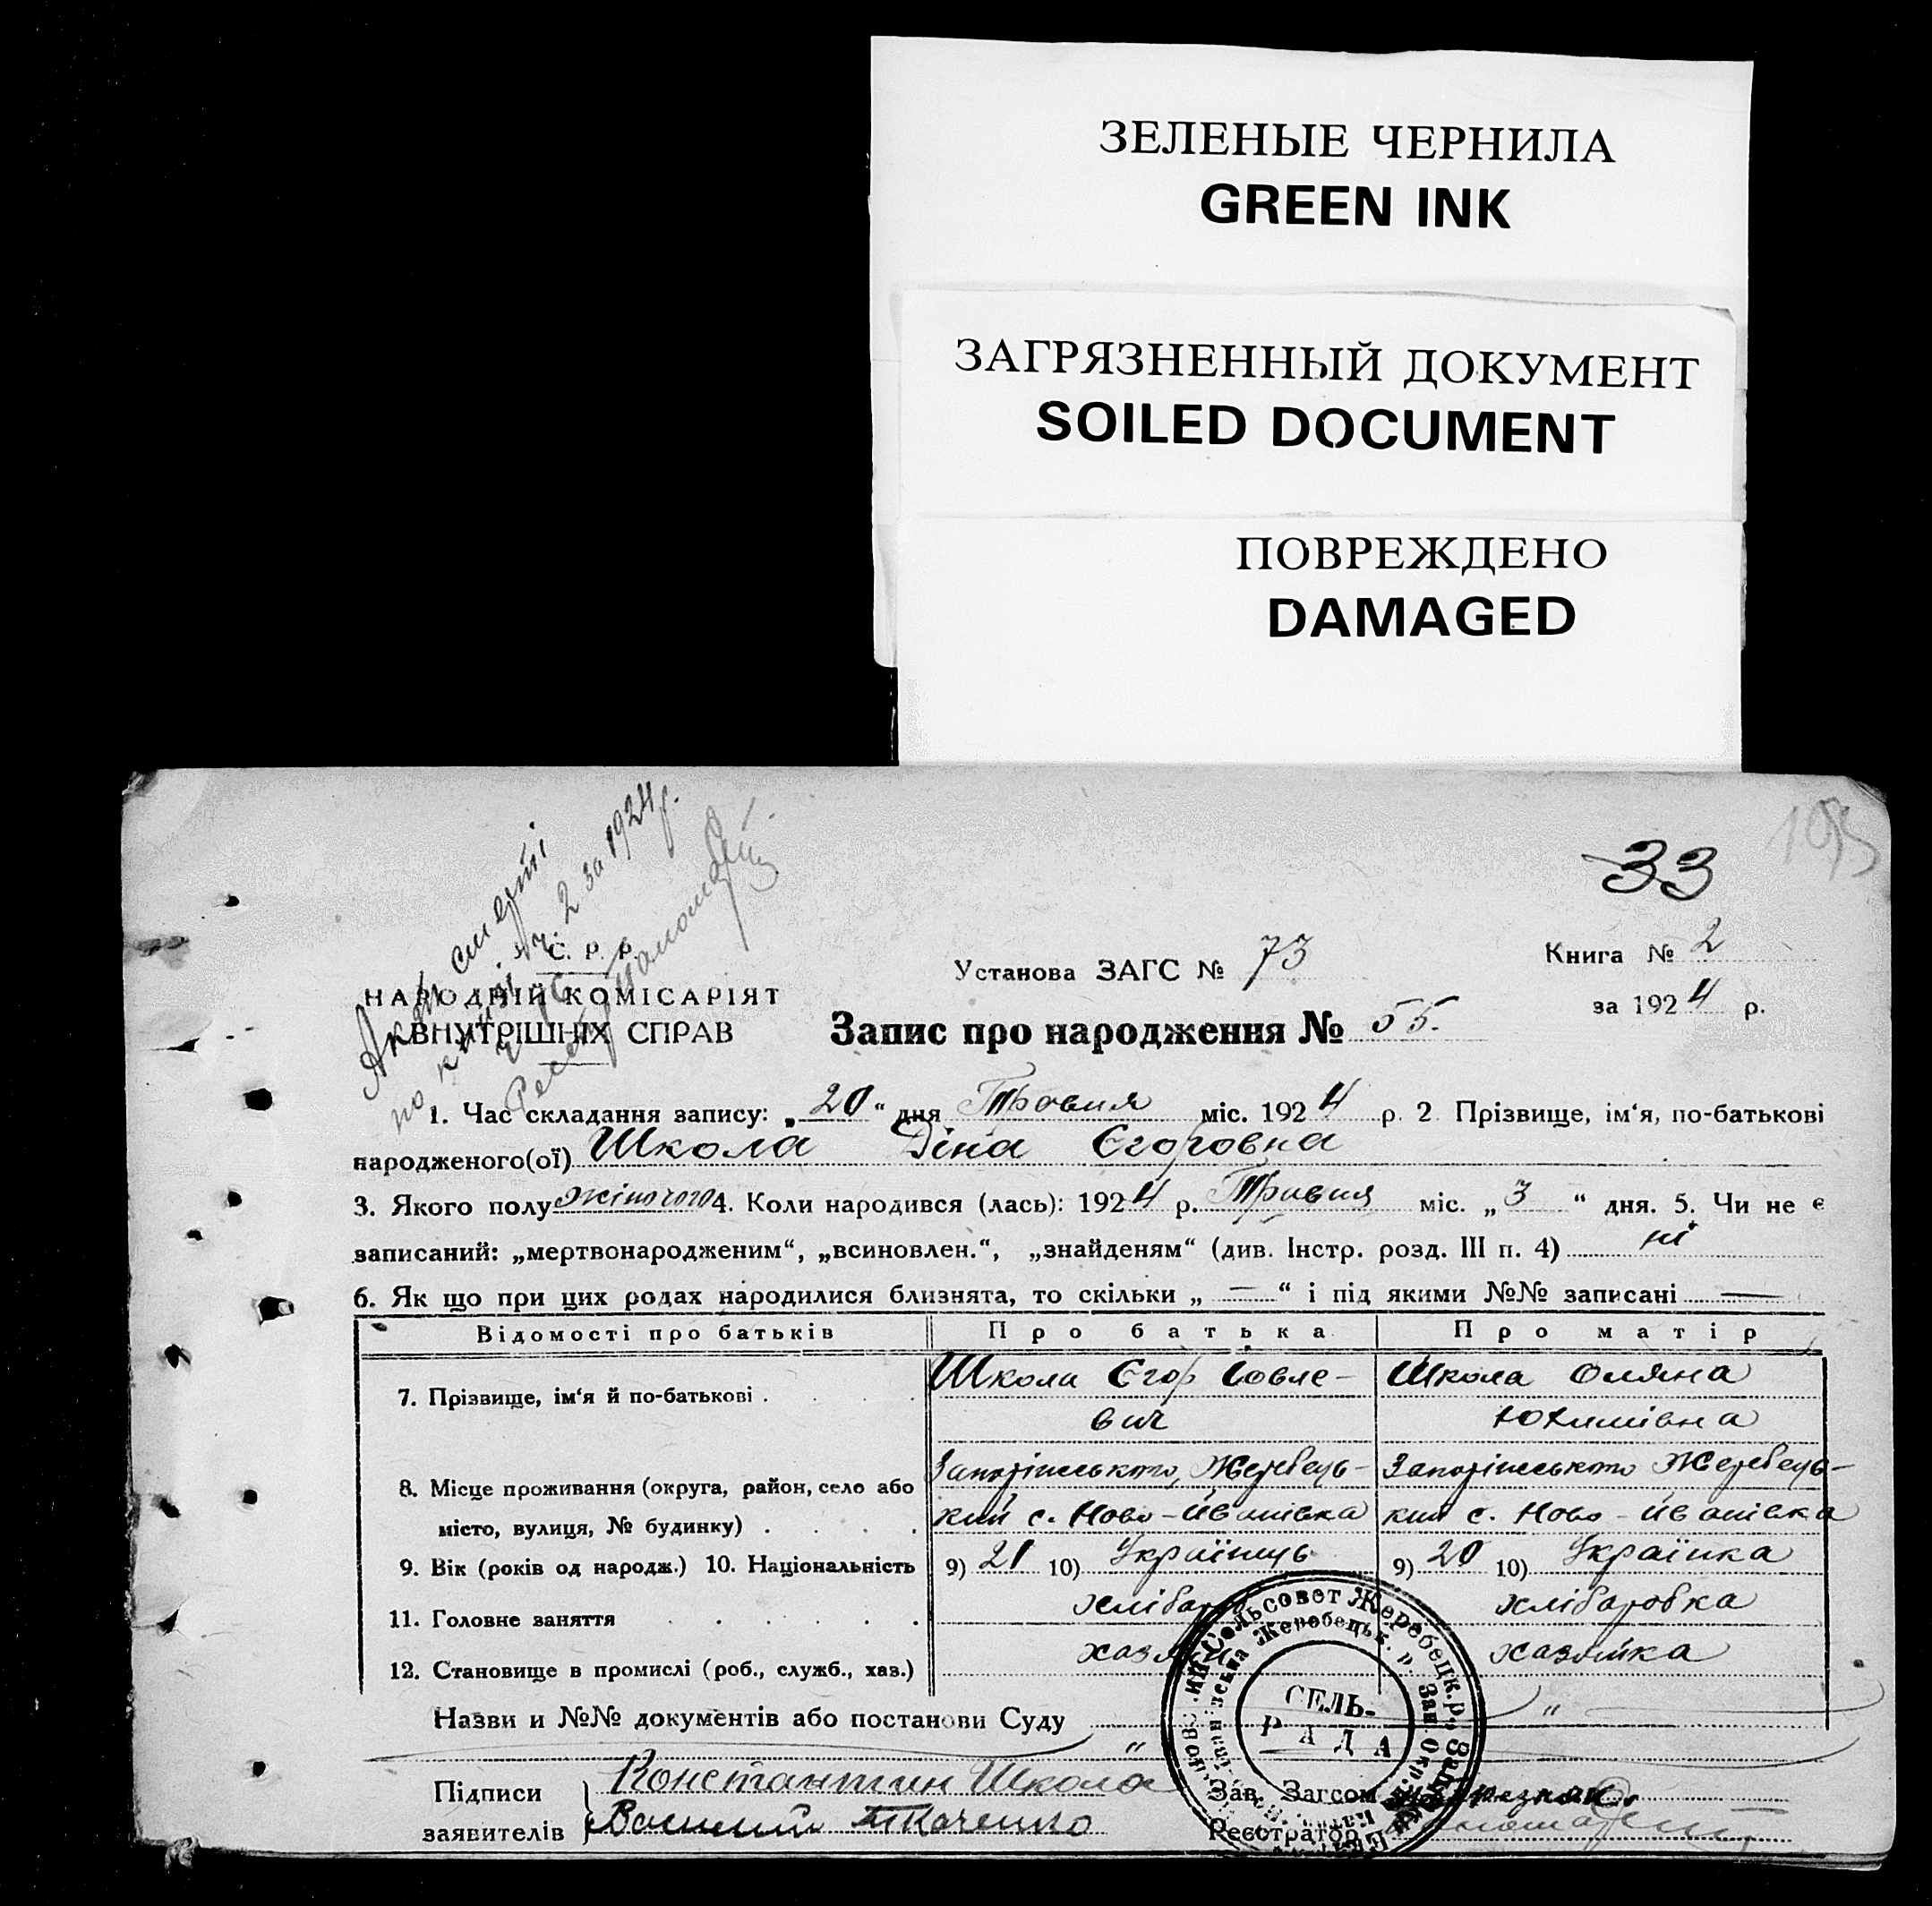 ЗЕЛЕНЫЕ ЧЕРНИЛА
GREEN INK
ЗАГРЯЗНЕННЫЙ ДОКУМЕНТ
SOILED DOCUMENT
ПОВРЕЖДЕНО
DAMAGED
33
193
Акт смерті
по книзі ч. 2 за 1924 р.
С. Р. Р.
НАРОДНІЙ КОМІСАРІЯТ
ВНУТРІШНІХ СПРАВ
Установа ЗАГС № 73
Книга № 2
за 1924 р.
Запис про народження № 55.
1. Час складання запису: „20“ дня Травня міс. 1924 р. 2 Прізвище, ім‘я, по-батькові
народженого(ої) Школа Діна Єгоровна
3. Якого полу жіночого 4. Коли народився (лась): 1924 р. Травня міс. „3“ дня. 5. Чи не є
записаний: „мертвонародженим“, „всиновлен.“, „знайденям“ (див. Інстр. розд. III п. 4) ні
6. Як що при цих родах народилися близнята, то скільки „—“ і під якими №№ записані —
Відомості про батьків Про батька Про матір
7. Прізвище, ім‘я й по-батькові . Школа Єгор Совле-вич Школа Оляна Юхимівна
8. Місце проживання (округа, район, село або
місто, вулиця, № будинку) . Запоріжського, Жеребець-кий с. Ново-Иванівка Запоріжського Жеребець-кий с. Ново-Иванівка
9. Вік (років од народж.) 10. Національність 9) 21 10) Українець 9) 20 10) Українка
11. Головне заняття хлібороб хліборобка
12. Становище в промислі (роб., служб., хаз.) хазяїн хазяйка
Назви и №№ документів або постанови Суду „ „
Підписи
заявителів
Константин Школа
Василий Ткаченко
Зав. Загсом
Реєстратор
СЕЛЬ-
РАДА
Сельсовет Жеребецк. р., Зап.
Жеребецьк. р. Зап. Окр.